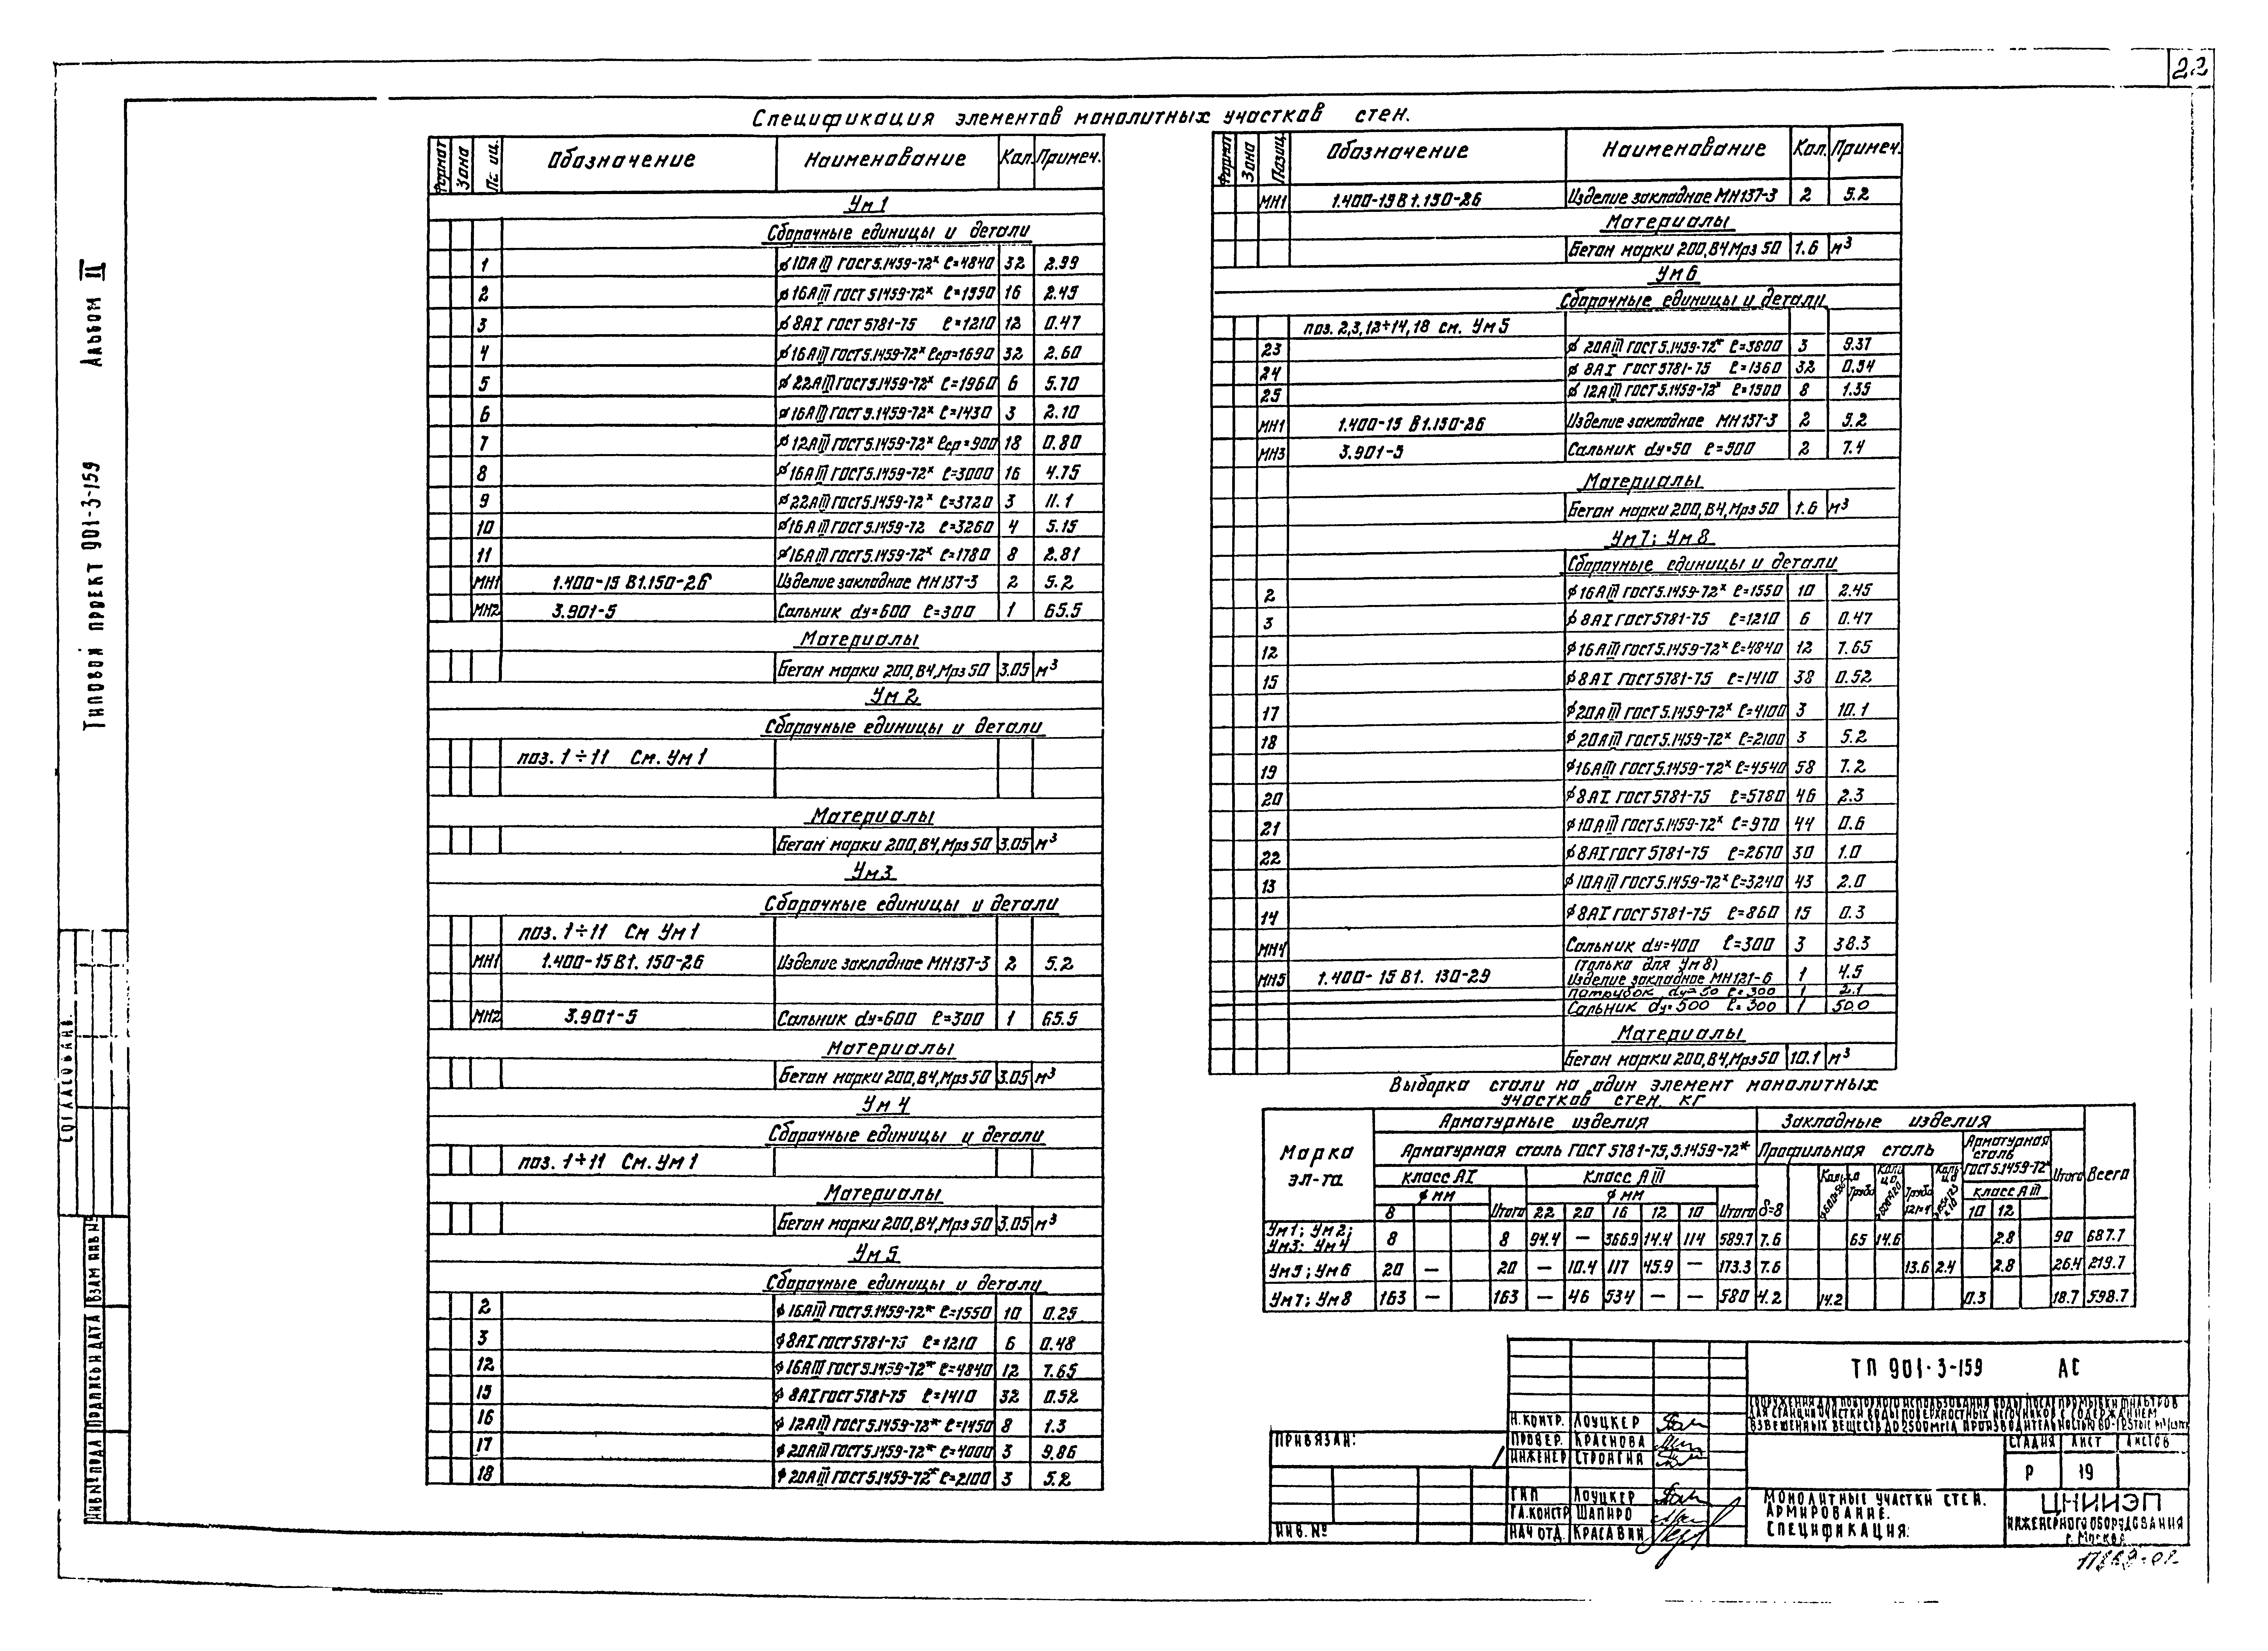 22
Альбом II
Типовой проект 901-3-159
Спецификация элементов монолитных участков стен.
Формат Зона Обозначение Наименование Кол. Примеч.
Ум1
Сборочные единицы и детали
1 ϕ10АIII ГОСТ5.1459-72* ℓ=4840 32 2.99
2 ϕ16АIII ГОСТ 51459-72* ℓ=1550 16 2.45
3 ϕ8АI ГОСТ 5781-75 ℓ=1210 12 0.47
4 ϕ16АIII ГОСТ5.1459-72* ℓср=1690 32 2.60
5 ϕ22АIII ГОСТ5.1459-72* ℓ=1960 6 5.70
6 ϕ16АIII ГОСТ5.1459-72* ℓ=1430 3 2.10
7 ϕ12АIII ГОСТ5.1459-72* ℓср=900 18 0.80
8 ϕ16АIII ГОСТ5.1459-72* ℓ=3000 16 4.75
9 ϕ22АIII ГОСТ5.1459-72* ℓ=3720 3 11.1
10 ϕ16АIII ГОСТ5.1459-72 ℓ=3260 4 5.15
11 ϕ16АIII ГОСТ5.1459-72* ℓ=1780 8 2.81
МН1 1.400-15 В1.150-26 Изделие закладное МН137-3 2 5.2
МН2 3.901-5 Сальник dу=600 ℓ=300 1 65.5
Материалы
Бетон марки 200,В4,Мрз50 3.05 м³
Ум2
Сборочные единицы и детали
поз. 1÷11 См. Ум1
Материалы
Бетон марки 200,В4,Мрз50 3.05 м³
Ум3
Сборочные единицы и детали
поз. 1÷11 См Ум1
МН1 1.400-15 В1. 150-26 Изделие закладное МН137-3 2 5.2
МН2 3.901-5 Сальник dу=600 ℓ=300 1 65.5
Материалы
Бетон марки 200,В4,Мрз50 3.05 м³
Ум4
Сборочные единицы и детали
поз. 1÷11 См. Ум1
Материалы
Бетон марки 200,В4,Мрз50 3.05 м³
Ум5
Сборочные единицы и детали
2 ϕ16АIII ГОСТ5.1459-72* ℓ=1550 10 0.25
3 ϕ8АI ГОСТ 5781-75 ℓ=1210 6 0.48
12 ϕ16АIII ГОСТ5.1459-72* ℓ=4840 12 7.65
15 ϕ8АI ГОСТ 5781-75 ℓ=1410 32 0.52
16 ϕ12АIII ГОСТ5.1459-72* ℓ=1450 8 1.3
17 ϕ20АIII ГОСТ5.1459-72* ℓ=4000 3 9.86
18 ϕ20АIII ГОСТ5.1459-72* ℓ=2100 3 5.2
Формат Зона Позиц. Обозначение Наименование Кол. Примеч.
МН1 1.400-15 В1.150-26 Изделие закладное МН137-3 2 5.2
Материалы
Бетон марки 200,В4 Мрз 50 1.6 м³
Ум6
Сборочные единицы и детали
поз. 2,3,12÷14,18 см. Ум5
23 ϕ20АIII ГОСТ5.1459-72* ℓ=3800 3 9.37
24 ϕ8АI ГОСТ5781-75 ℓ=1360 32 0.54
25 ϕ12АIII ГОСТ5.1459-72* ℓ=1500 8 1.35
МН1 1.400-15 В1.150-26 Изделие закладное МН137-3 2 5.2
МН3 3.901-5 Сальник dу=50 ℓ=500 2 7.4
Материалы
Бетон марки 200,В4,Мрз50 1.6 м³
Ум7; Ум8
Сборочные единицы и детали
2 ϕ16АIII ГОСТ5.1459-72* ℓ=1550 10 2.45
3 ϕ8АI ГОСТ5781-75 ℓ=1210 6 0.47
12 ϕ16АIII ГОСТ5.1459-72* ℓ=4840 12 7.65
15 ϕ8АI ГОСТ5781-75 ℓ=1410 38 0.52
17 ϕ20АIII ГОСТ5.1459-72* ℓ=4100 3 10.1
18 ϕ20АIII ГОСТ5.1459-72* ℓ=2100 3 5.2
19 ϕ16АIII ГОСТ5.1459-72* ℓ=4540 58 7.2
20 ϕ8АI ГОСТ5781-75 ℓ=5780 46 2.3
21 ϕ10АIII ГОСТ5.1459-72* ℓ=970 44 0.6
22 ϕ8АI ГОСТ 5781-75 ℓ=2670 30 1.0
13 ϕ10АIII ГОСТ5.1459-72* ℓ=3240 43 2.0
14 ϕ8АI ГОСТ5781-75 ℓ=860 15 0.3
МН4 Сальник dу=400 ℓ=300 3 38.3
(только для Ум8)
МН5 1.400-15 В1. 130-29 Изделие закладное МН121-6 1 4.5
Патрубок dу=50 ℓ=300 1 2.1
Сальник dу=500 ℓ=300 1 50.0
Материалы
Бетон марки 200,В4,Мрз50 10.1 м³
Выборка стали на один элемент монолитных
участков стен. кг
Марка эл-та Арматурные изделия Закладные изделия Всего
Арматурная сталь ГОСТ 5781-75, 5.1459-72* Профильная сталь Арматурная сталь ГОСТ5.1459-72* Итого
класс АI Класс АIII класс АIII
ϕ мм ϕ мм
8 Итого 22 20 16 12 10 Итого δ=8 Труба 10 12
Ум1; Ум2; Ум3; Ум4 8 8 94.4 — 366.9 14.4 114 589.7 7.6 65 14.6 2.8 90 687.7
Ум5; Ум6 20 — 20 — 10.4 117 45.9 — 173.3 7.6 13.6 2.4 2.8 26.4 219.7
Ум7; Ум8 163 — 163 — 46 534 — — 580 4.2 14.2 0.3 18.7 598.7
СОГЛАСОВАНО
ИНВ № ПОДЛ ПОДПИСЬ И ДАТА ВЗАМ ИНВ №
ПРИВЯЗАН:
ИНВ. №
Н.КОНТР. ЛОУЦКЕР
ПРОВЕР. КРАСНОВА
ИНЖЕНЕР
ГИП ЛОУЦКЕР
ГЛ.КОНСТР ШАПИРО
НАЧ ОТД. КРАСАВИН
ТП 901-3-159 АС
СООРУЖЕНИЯ ДЛЯ ПОВТОРНОГО ИСПОЛЬЗОВАНИЯ ВОДЫ ПОСЛЕ ПРОМЫВКИ ФИЛЬТРОВ
ДЛЯ СТАНЦИЙ ОЧИСТКИ ВОДЫ ПОВЕРХНОСТНЫХ ИСТОЧНИКОВ С СОДЕРЖАНИЕМ
ВЗВЕШЕННЫХ ВЕЩЕСТВ ДО 2500 мг/л ПРОИЗВОДИТЕЛЬНОСТЬЮ
СТАДИЯ ЛИСТ ЛИСТОВ
Р 19
МОНОЛИТНЫЕ УЧАСТКИ СТЕН.
АРМИРОВАНИЕ.
СПЕЦИФИКАЦИЯ.
ЦНИИЭП
ИНЖЕНЕРНОГО ОБОРУДОВАНИЯ
г. Москва